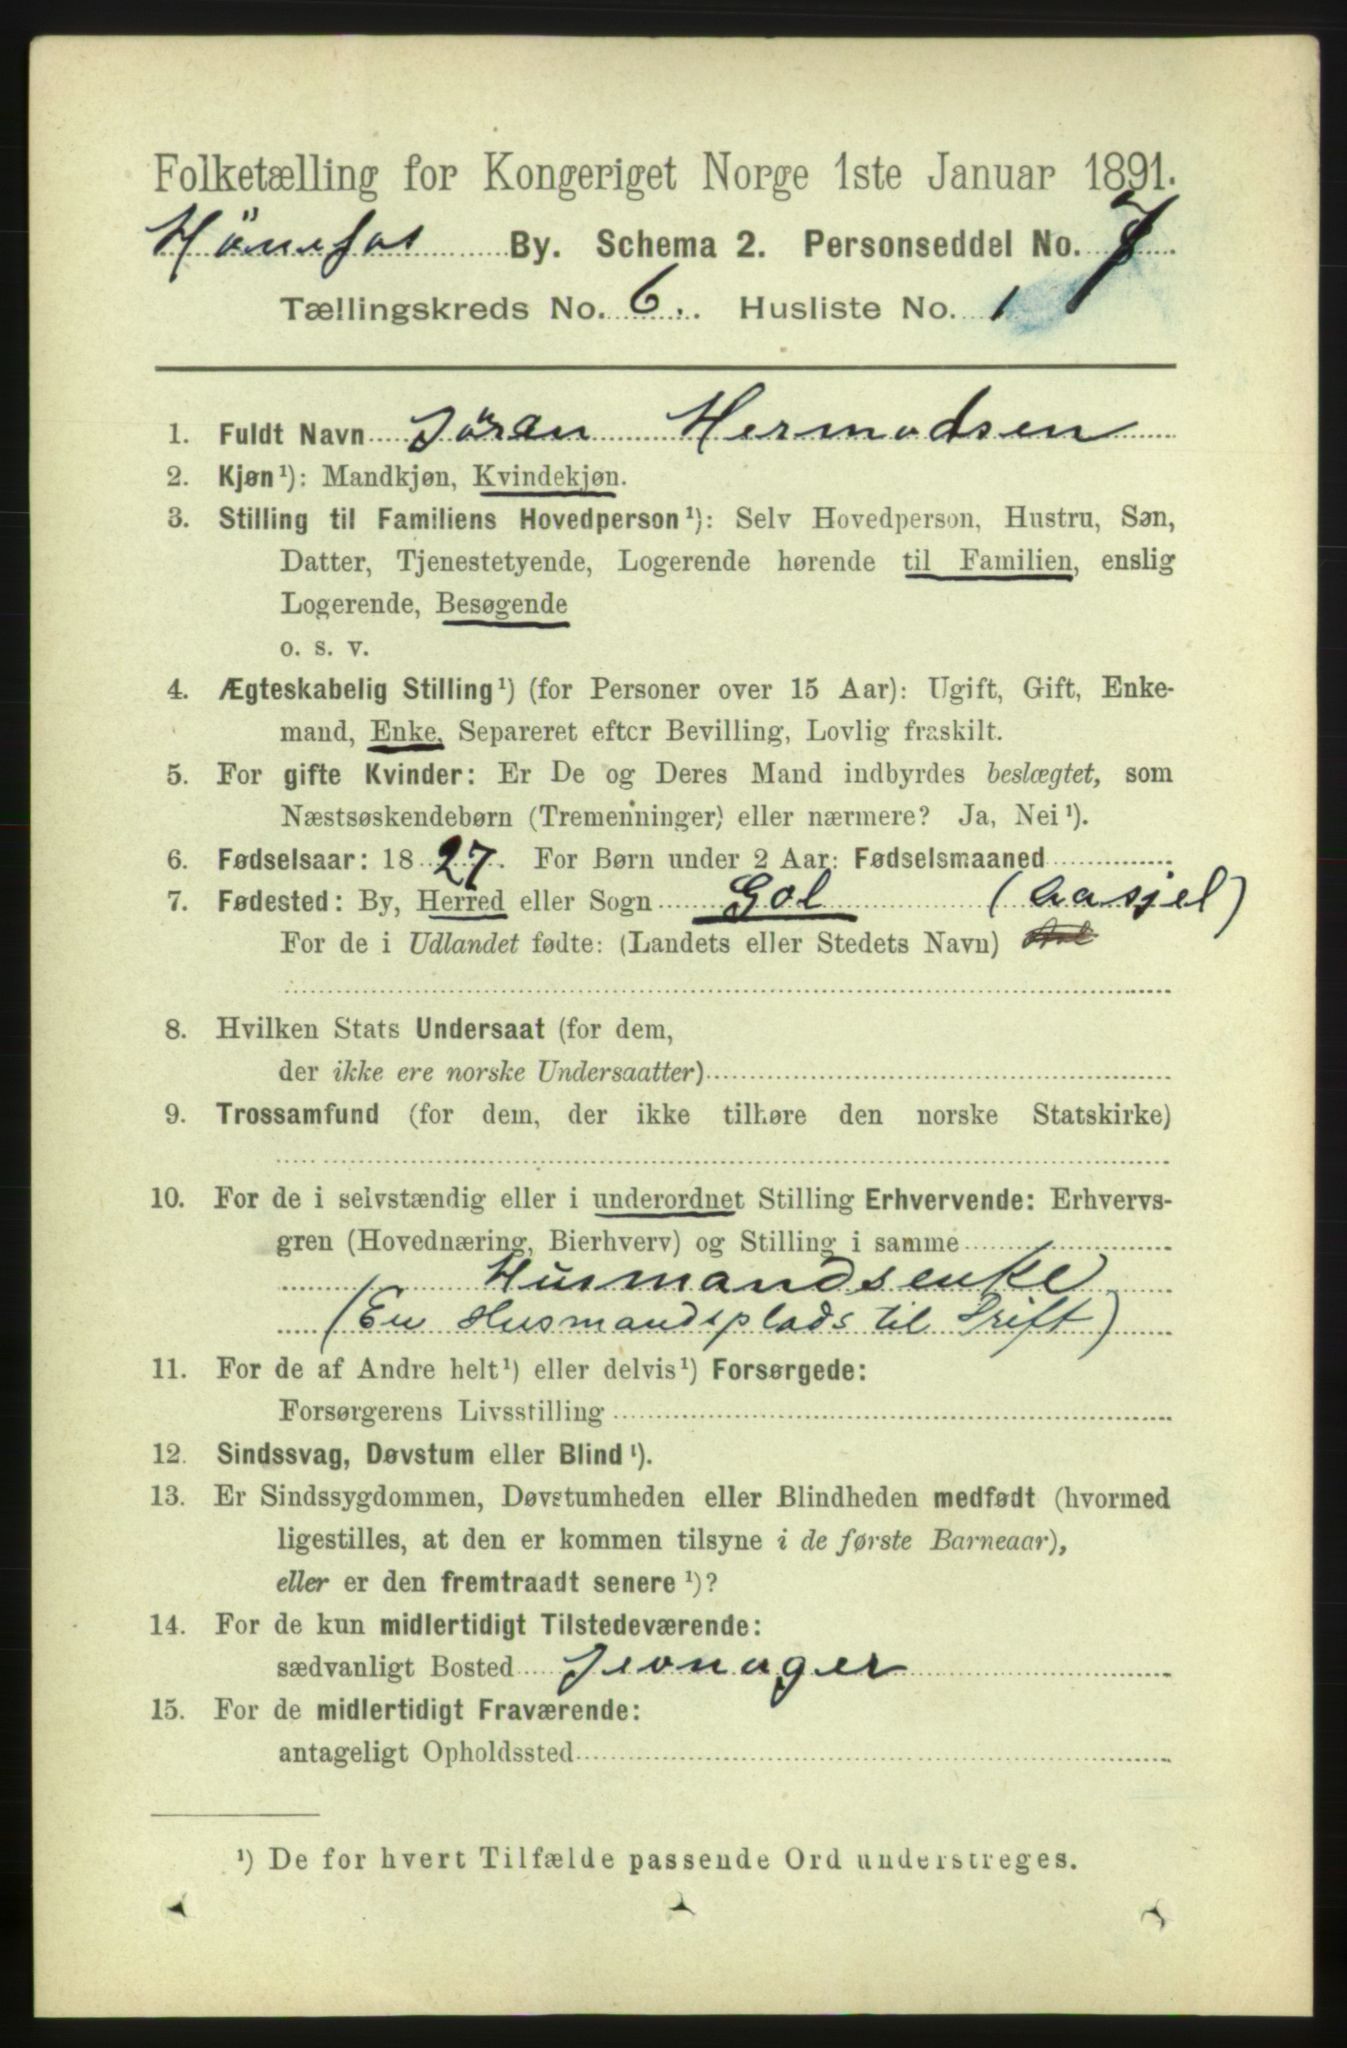 Folketælling for Kongeriget Norge 1ste Januar 1891.
Hönefos By. Schema 2. Personseddel No. 7
Tællingskreds No. 6. Husliste No. 1
1. Fuldt Navn Jöran Hermodsen
2. Kjøn¹): Mandkjøn, Kvindekjøn.
3. Stilling til Familiens Hovedperson¹): Selv Hovedperson, Hustru, Søn,
Datter, Tjenestetyende, Logerende hørende til Familien, enslig
Logerende, Besøgende
o. s. v.
4. Ægteskabelig Stilling¹) (for Personer over 15 Aar): Ugift, Gift, Enke-
mand, Enke, Separeret efter Bevilling, Lovlig fraskilt.
5. For gifte Kvinder: Er De og Deres Mand indbyrdes beslægtet, som
Næstsøskendebørn (Tremenninger) eller nærmere? Ja, Nei¹).
6. Fødselsaar: 1827. For Børn under 2 Aar: Fødselsmaaned
7. Fødested: By, Herred eller Sogn Gol (Aasjel)
For de i Udlandet fødte: (Landets eller Stedets Navn)
8. Hvilken Stats Undersaat (for dem,
der ikke ere norske Undersaatter)
9. Trossamfund (for dem, der ikke tilhøre den norske Statskirke)
10. For de i selvstændig eller i underordnet Stilling Erhvervende: Erhvervs-
gren (Hovednæring, Bierhverv) og Stilling i samme
Husmandsenke
(En Husmandsplads til Drift)
11. For de af Andre helt¹) eller delvis¹) Forsørgede:
Forsørgerens Livsstilling
12. Sindssvag, Døvstum eller Blind¹).
13. Er Sindssygdommen, Døvstumheden eller Blindheden medfødt (hvormed
ligestilles, at den er kommen tilsyne i de første Barneaar),
eller er den fremtraadt senere¹)?
14. For de kun midlertidigt Tilstedeværende:
sædvanligt Bosted Jevnager
15. For de midlertidigt Fraværende:
antageligt Opholdssted
¹) De for hvert Tilfælde passende Ord understreges.